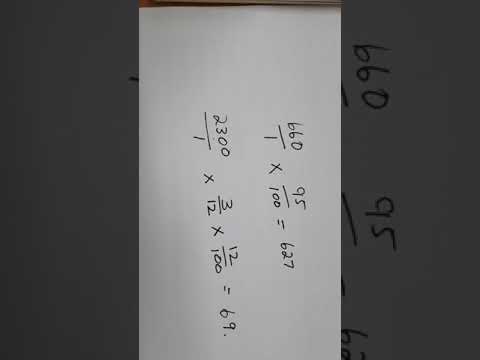 660/1 × 95/100 = 627
2300/1 × 3/12 × 12/100 = 69.